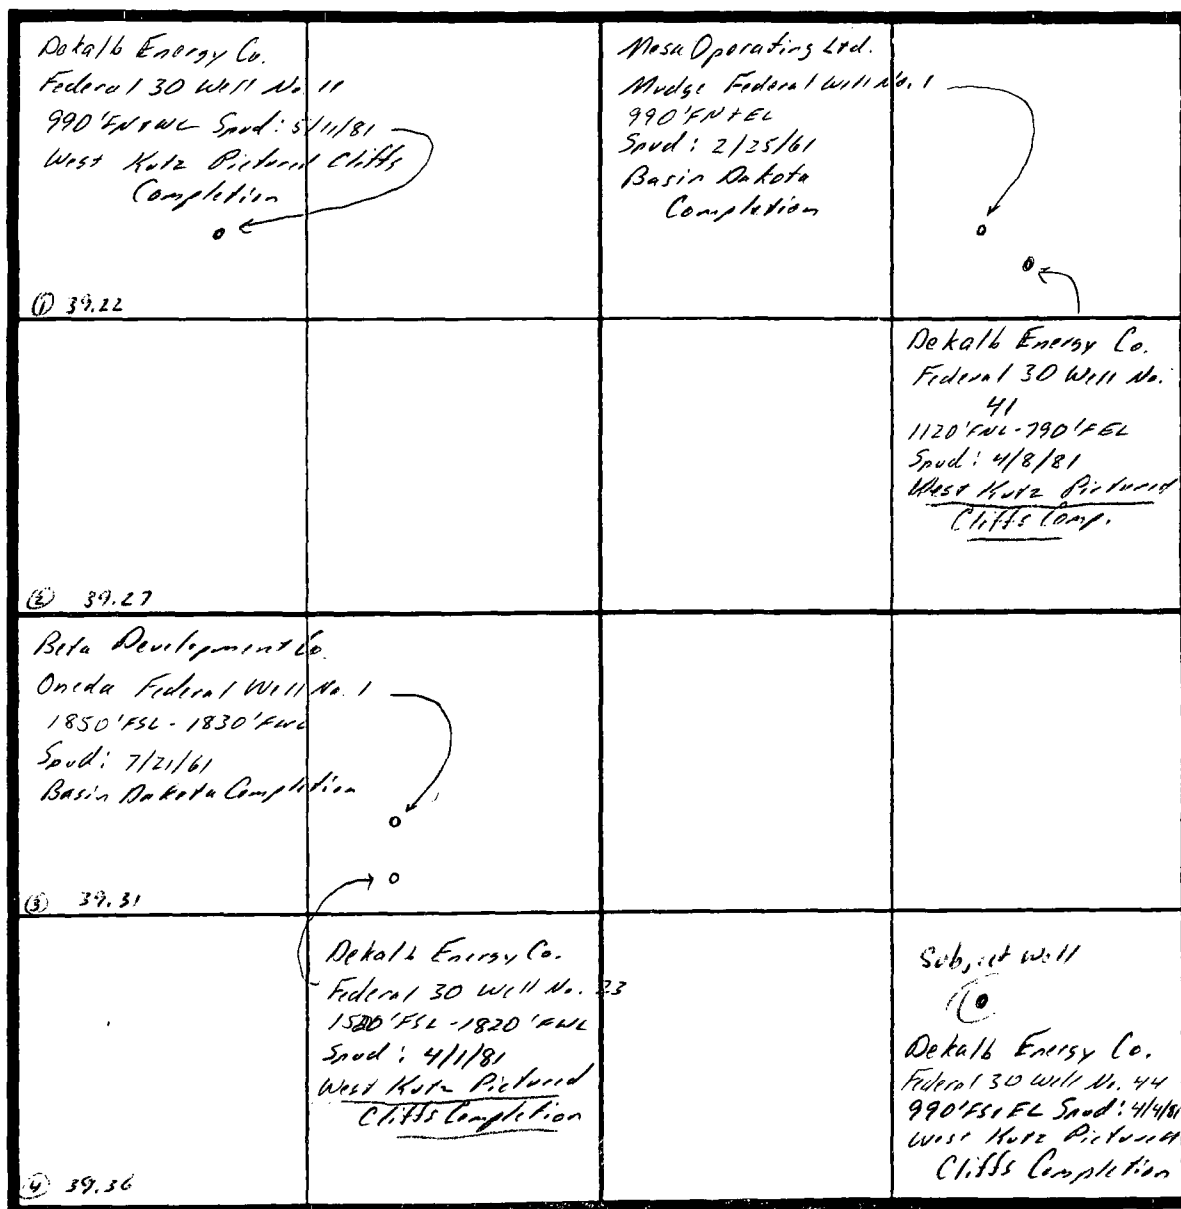 Dekalb Energy Co.
Federal 30 Well No. 11
990'FN+WL Spud: 5/11/81
West Kutz Pictured Cliffs
Completion
① 39.22
Mesa Operating Ltd.
Mudge Federal Well No. 1
990'FN+EL
Spud: 2/25/61
Basin Dakota
Completion
Dekalb Energy Co.
Federal 30 Well No.
41
1120'FNL-790'FEL
Spud: 4/8/81
West Kutz Pictured
Cliffs Comp.
② 39.27
Beta Development Co.
Oneda Federal Well No. 1
1850'FSL-1830'FWL
Spud: 7/21/61
Basin Dakota Completion
③ 39.31
Dekalb Energy Co.
Federal 30 Well No. 23
1520'FSL-1820'FWL
Spud: 4/1/81
West Kutz Pictured
Cliffs Completion
Subject Well
Dekalb Energy Co.
Federal 30 Well No. 44
990'FS+EL Spud: 4/4/81
West Kutz Pictured
Cliffs Completion
④ 39.36